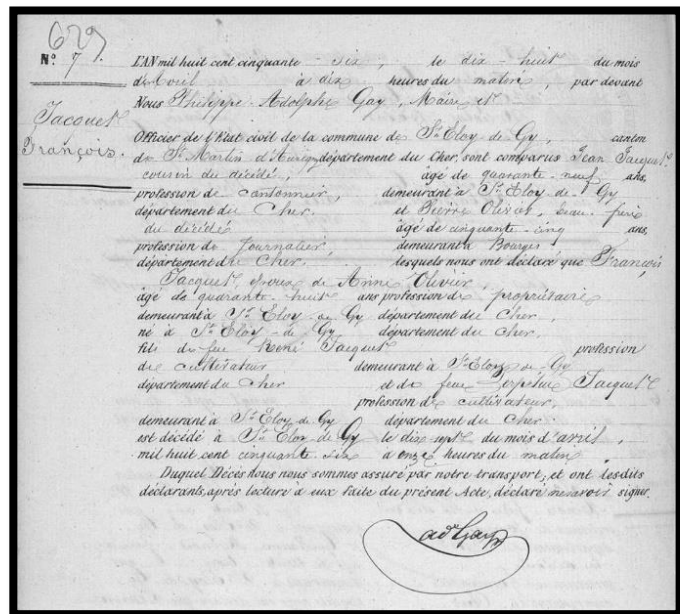 629
N° 7.
L'AN mil huit cent cinquante-six, le dix-huit du mois
d'avril à dix heures du matin, par devant
Nous Philippe-Adolphe Gay, Maire et
Jacquet
François.
Officier de l'Etat civil de la commune de St Eloy-de-Gy, canton
de St Martin d'Auxigny département du Cher, sont comparus Jean Jacquet
cousin du décédé, âgé de quarante-neuf ans,
profession de cantonnier, demeurant à St Eloy-de-Gy
département du Cher. et Pierre Olivier, beau-frère
du décédé âgé de cinquante-cinq ans,
profession de Journalier, demeurant à Bourges
département du Cher. lesquels nous ont déclaré que François
Jacquet, époux de Anne Olivier,
âgé de quarante-huit ans profession de propriétaire
demeurant à St Eloy-de-Gy département du Cher,
né à St Eloy-de-Gy département du Cher.
fils de feu René Jacquet profession
de cultivateur demeurant à St Eloy-de-Gy
département du Cher et de feue Jacquet
profession de cultivateur,
demeurant à St Eloy-de-Gy département du Cher
est décédé à St Eloy-de-Gy le dix sept du mois d'avril,
mil huit cent cinquante-six à onze heures du matin.
Duquel Décès nous nous sommes assuré par notre transport, et ont lesdits
déclarants, après lecture à eux faite du présent Acte, déclaré ne savoir signer.
adGay